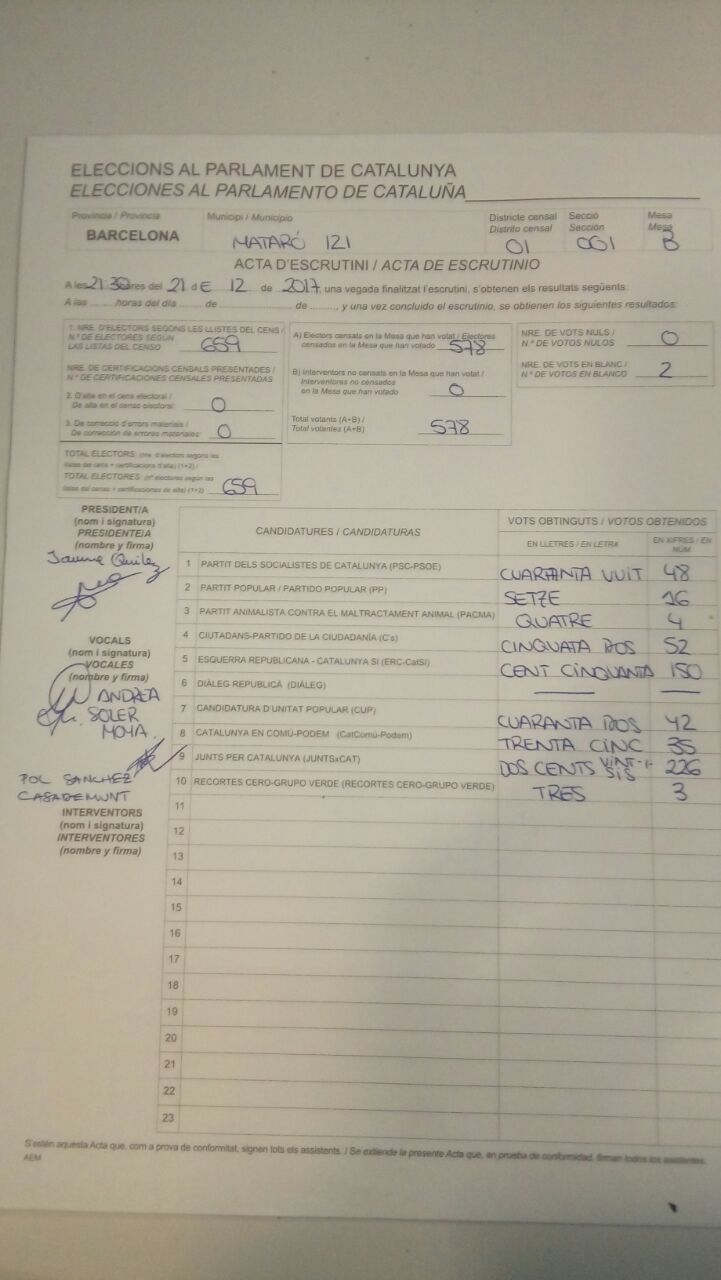 ELECCIONS AL PARLAMENT DE CATALUNYA
ELECCIONES AL PARLAMENTO DE CATALUÑA
Província / Provincia
BARCELONA
Municipi / Municipio
MATARÓ 121
Districte censal
Distrito censal
01
Secció
Sección
001
Mesa
Mesa
B
ACTA D'ESCRUTINI / ACTA DE ESCRUTINIO
A les 21:30 ores del 21 d E 12 de 2017, una vegada finalitzat l'escrutini, s'obtenen els resultats següents:
A las ........ horas del día ........ de ........ de ........, y una vez concluido el escrutinio, se obtienen los siguientes resultados:
1. NRE. D'ELECTORS SEGONS LES LLISTES DEL CENS /
N.º DE ELECTORES SEGÚN
LAS LISTAS DEL CENSO 659
NRE. DE CERTIFICACIONS CENSALS PRESENTADES /
N.º DE CERTIFICACIONES CENSALES PRESENTADAS
2. D'alta en el cens electoral /
De alta en el censo electoral: 0
3. De correcció d'errors materials /
De corrección de errores materiales: 0
TOTAL ELECTORS: (nre. d'electors segons les
llistes del cens + certificacions d'alta) (1+2) /
TOTAL ELECTORES: (nº electores según las
listas del censo + certificaciones de alta) (1+2) 659
A) Electors censats en la Mesa que han votat / Electores
censados en la Mesa que han votado 578
B) Interventors no censats en la Mesa que han votat /
Interventores no censados
en la Mesa que han votado 0
Total votants (A+B) /
Total votantes (A+B) 578
NRE. DE VOTS NULS /
N.º DE VOTOS NULOS 0
NRE. DE VOTS EN BLANC /
N.º DE VOTOS EN BLANCO 2
PRESIDENT/A
(nom i signatura)
PRESIDENTE/A
(nombre y firma)
Jaume Quilez
VOCALS
(nom i signatura)
VOCALES
(nombre y firma)
ANDREA
SOLER
MOYA.
POL SANCHEZ
CASADEMUNT
INTERVENTORS
(nom i signatura)
INTERVENTORES
(nombre y firma)
CANDIDATURES / CANDIDATURAS
VOTS OBTINGUTS / VOTOS OBTENIDOS
EN LLETRES / EN LETRA
EN XIFRES / EN NÚM
1 PARTIT DELS SOCIALISTES DE CATALUNYA (PSC-PSOE) CUARANTA VUIT 48
2 PARTIT POPULAR / PARTIDO POPULAR (PP) SETZE 16
3 PARTIT ANIMALISTA CONTRA EL MALTRACTAMENT ANIMAL (PACMA) QUATRE 4
4 CIUTADANS-PARTIDO DE LA CIUDADANÍA (C's) CINQUATA DOS 52
5 ESQUERRA REPUBLICANA - CATALUNYA SÍ (ERC-CatSí) CENT CINQUANTA 150
6 DIÀLEG REPUBLICÀ (DIÀLEG)
7 CANDIDATURA D'UNITAT POPULAR (CUP) CUARANTA DOS 42
8 CATALUNYA EN COMÚ-PODEM (CatComú-Podem) TRENTA CINC 35
9 JUNTS PER CATALUNYA (JUNTSxCAT) DOS CENTS VINT-I-SIS 226
10 RECORTES CERO-GRUPO VERDE (RECORTES CERO-GRUPO VERDE) TRES 3
11
12
13
14
15
16
17
18
19
20
21
22
23
S'estén aquesta Acta que, com a prova de conformitat, signen tots els assistents. / Se extiende la presente Acta que, en prueba de conformidad, firman todos los asistentes.
AEM